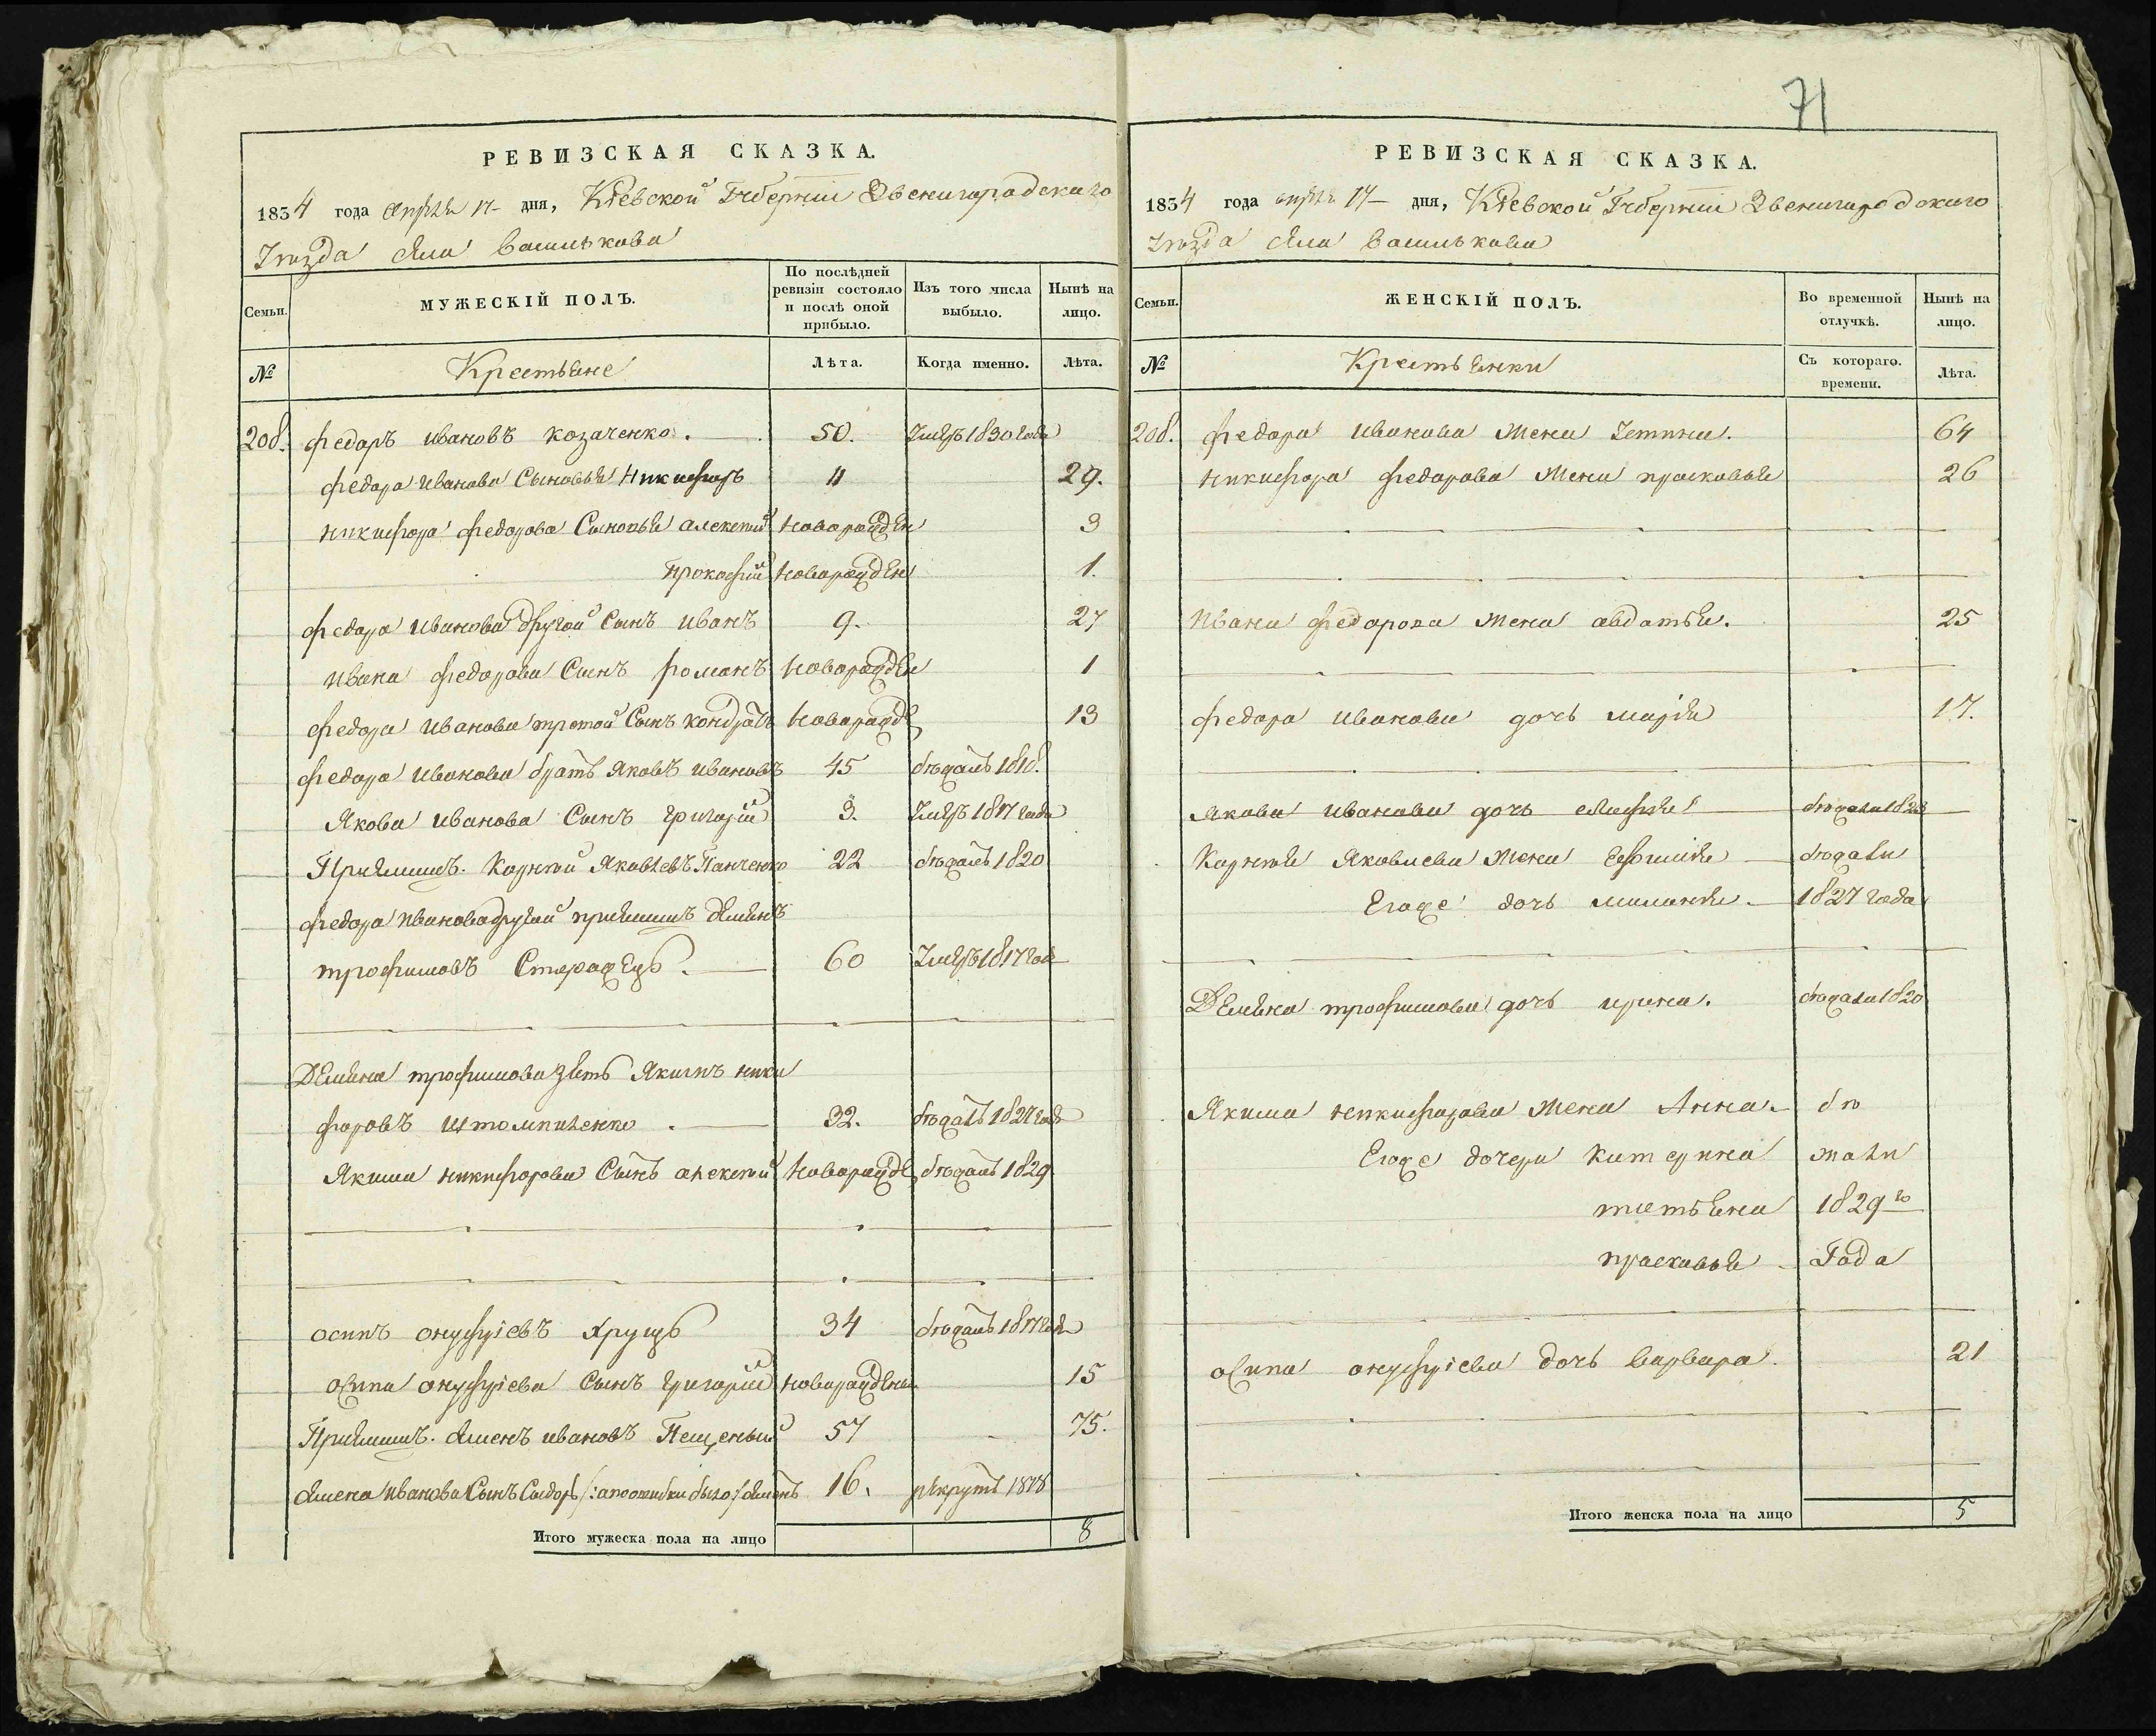 71
РЕВИЗСКАЯ СКАЗКА.
1834 года апреля 17 дня, Кіевской Губерніи Звенигородскаго
Уезда села Василькова
Семьи.
МУЖЕСКІЙ ПОЛЪ.
По послѣдней ревизіи состояло и послѣ оной прибыло.
Изъ того числа выбыло.
Нынѣ на лицо.
№
Крестьяне
Лѣта.
Когда именно.
Лѣта.
208. федоръ ивановъ козаченко. 50. Умеръ 1830 года
федора иванова Сыновья Никифоръ 11 29.
никифора федорова Сыновья алексей новорожден 3
Прокофий новорожден 1.
федора иванова другой Сынъ иванъ 9. 27
ивана федорова Сынъ романъ новорожден 1
федора иванова третой Сынъ кондратъ новорожд 13
федора иванова братъ яковъ ивановъ 45 бежалъ 1818.
Якова иванова Сынъ григорій 3. Умеръ 1817 года
Приймишъ. Корней Яковлевъ Панченко 22 бежалъ 1820
федора иванова другой приймишъ демянъ
трофимовъ 60 Умеръ 1817 года
Демяна трофимова зять Якимъ ники
форовъ 32. бежалъ 1827 года
Якима никифорова Сынъ алексей новорожд бежалъ 1829
осипъ онуфріевъ Хрущъ 34 бежалъ 1817 года
осипа онуфріева Сынъ григорій новорожден 15
Приймишъ. семенъ ивановъ 57 75.
семена иванова Сынъ Сыдоръ /:а по ошибки было:/ семенъ 16. рекрутъ 1818
Итого мужеска пола на лицо 8
РЕВИЗСКАЯ СКАЗКА.
1834 года апреля 17 дня, Кіевской Губерніи Звенигородскаго
Уезда села Василькова
Семьи.
ЖЕНСКІЙ ПОЛЪ.
Во временной отлучкѣ.
Нынѣ на лицо.
№
Крестьянки
Съ котораго времени.
Лѣта.
208. федора иванова жена Устина. 64
никифора федорова жена прасковья 26
Ивана федорова жена авдотья. 25
федора иванова дочь марія 17.
Якова иванова дочь бежала
Корнея Яковлева жена Ефимія бежали
Егоже дочь миланія 1827 года
Демяна трофимова дочь ирина. бежала 1820
Якима никифорова жена Анна бе
Егоже дочери катерина жали
татьяна 1829го
прасковья Года
осипа онуфріева дочь варвара. 21
Итого женска пола на лицо 5